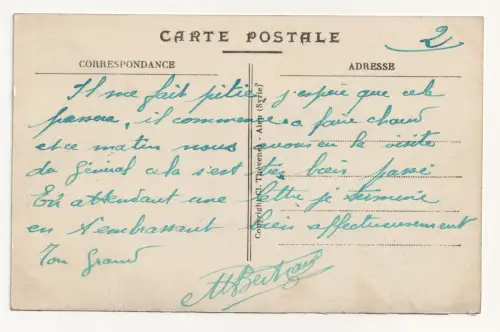 CARTE POSTALE
2
CORRESPONDANCE
ADRESSE
Il me fait pitié, j'espère que cela
passera, il commence a faire chaud
et ce matin nous avons eu la visite
du Général cela s'est très bien passé
En attendant une lettre je termine
en t'embrassant bien affectueusement
Ton grand
MBertrand
Copyright C. Thévenet - Alep (Syrie)